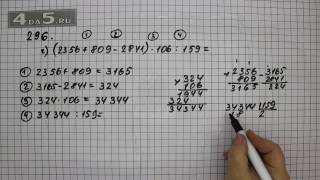 4DA5.RU
296.
① ② ③ ④
2) (2356 + 809 - 2841) · 106 : 159 =
① 2356 + 809 = 3165
② 3165 - 2841 = 324
③ 324 · 106 = 34344
④ 34344 : 159 =
× 324
106
1944
324
34344
+ 2356
809
3165
- 3165
2841
324
34344 | 159
2